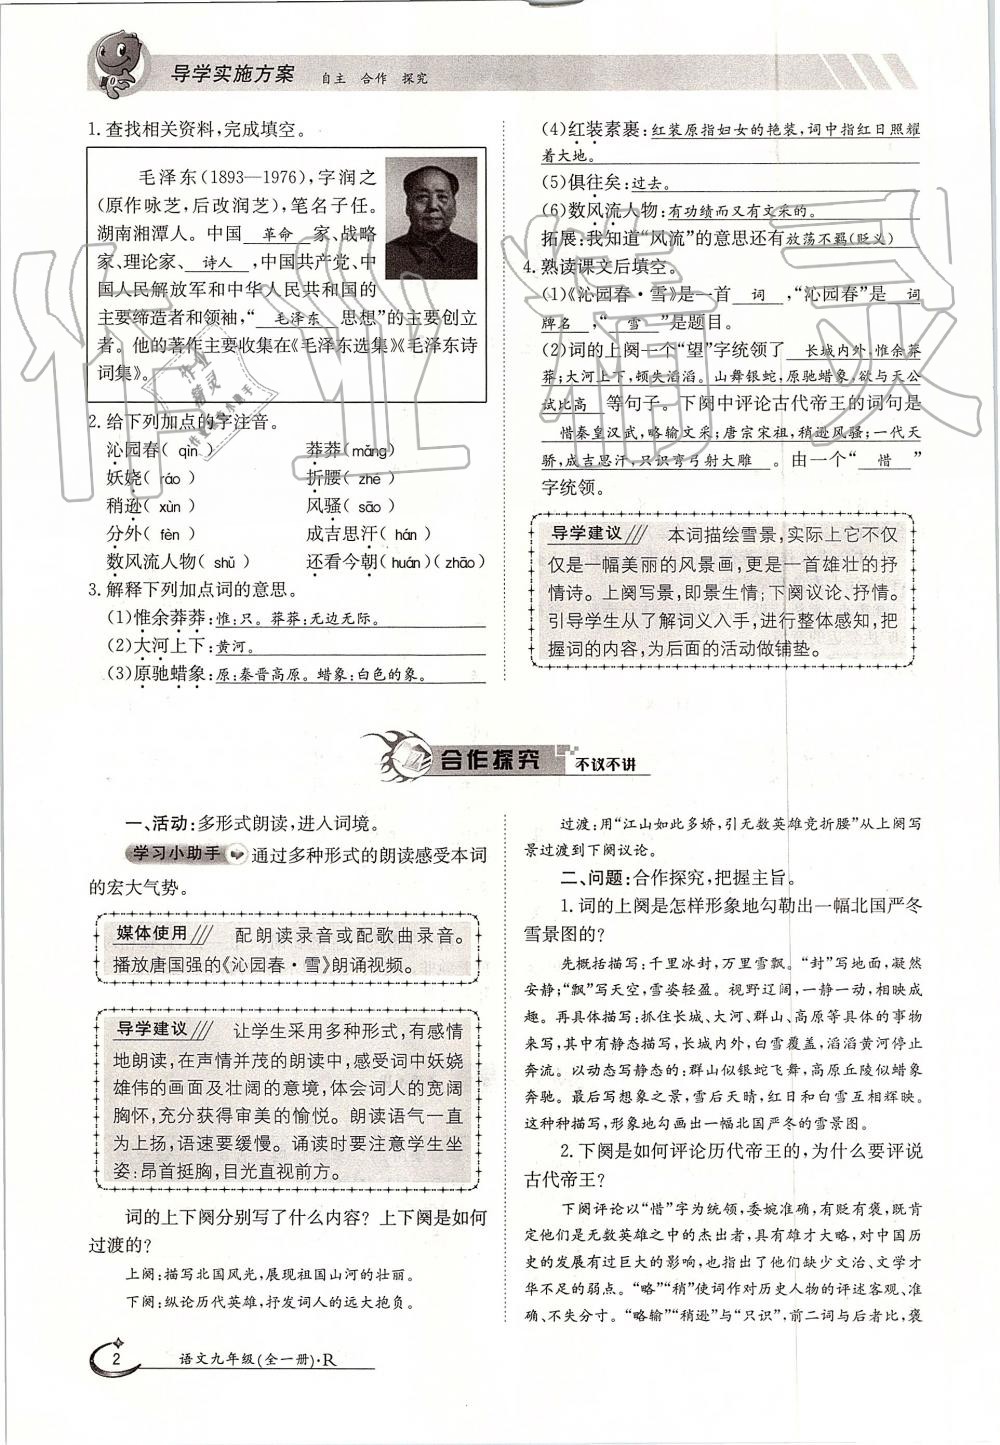 导学实施方案 自主 合作 探究
1. 查找相关资料,完成填空。
毛泽东(1893—1976),字润之
(原作咏芝,后改润芝),笔名子任。
湖南湘潭人。中国 革命 家、战略
家、理论家、 诗人 ,中国共产党、中
国人民解放军和中华人民共和国的
主要缔造者和领袖,“ 毛泽东 思想”的主要创立
者。他的著作主要收集在《毛泽东选集》《毛泽东诗
词集》。
2. 给下列加点的字注音。
沁园春( qìn ) 莽莽(mǎng)
妖娆( ráo ) 折腰( zhé )
稍逊( xùn ) 风骚( sāo )
分外( fèn ) 成吉思汗( hán )
数风流人物( shǔ ) 还看今朝(huán)(zhāo)
3. 解释下列加点词的意思。
(1)惟余莽莽:惟:只。莽莽:无边无际。
(2)大河上下:黄河。
(3)原驰蜡象:原:秦晋高原。蜡象:白色的象。
(4)红装素裹:红装原指妇女的艳装,词中指红日照耀
着大地。
(5)俱往矣:过去。
(6)数风流人物:有功绩而又有文采的。
拓展:我知道“风流”的意思还有放荡不羁(贬义)
4. 熟读课文后填空。
(1)《沁园春·雪》是一首 词 ,“沁园春”是 词
牌名 ,“ 雪 ”是题目。
(2)词的上阕一个“望”字统领了 长城内外,惟余莽
莽;大河上下,顿失滔滔。山舞银蛇,原驰蜡象,欲与天公
试比高 等句子。下阕中评论古代帝王的词句是
惜秦皇汉武,略输文采;唐宗宋祖,稍逊风骚;一代天
骄,成吉思汗,只识弯弓射大雕 。由一个“ 惜 ”
字统领。
导学建议 本词描绘雪景,实际上它不仅
仅是一幅美丽的风景画,更是一首雄壮的抒
情诗。上阕写景,即景生情;下阕议论、抒情。
引导学生从了解词义入手,进行整体感知,把
握词的内容,为后面的活动做铺垫。
合作探究 不议不讲
一、活动:多形式朗读,进入词境。
学习小助手 通过多种形式的朗读感受本词
的宏大气势。
媒体使用 配朗读录音或配歌曲录音。
播放唐国强的《沁园春·雪》朗诵视频。
导学建议 让学生采用多种形式,有感情
地朗读,在声情并茂的朗读中,感受词中妖娆
雄伟的画面及壮阔的意境,体会词人的宽阔
胸怀,充分获得审美的愉悦。朗读语气一直
为上扬,语速要缓慢。诵读时要注意学生坐
姿:昂首挺胸,目光直视前方。
词的上下阕分别写了什么内容?上下阕是如何
过渡的?
上阕:描写北国风光,展现祖国山河的壮丽。
下阕:纵论历代英雄,抒发词人的远大抱负。
过渡:用“江山如此多娇,引无数英雄竞折腰”从上阕写
景过渡到下阕议论。
二、问题:合作探究,把握主旨。
1. 词的上阕是怎样形象地勾勒出一幅北国严冬
雪景图的?
先概括描写:千里冰封,万里雪飘。“封”写地面,凝然
安静;“飘”写天空,雪姿轻盈。视野辽阔,一静一动,相映成
趣。再具体描写:抓住长城、大河、群山、高原等具体的事物
来写,其中有静态描写,长城内外,白雪覆盖,滔滔黄河停止
奔流。以动态写静态的:群山似银蛇飞舞,高原丘陵似蜡象
奔驰。最后写想象之景,雪后天晴,红日和白雪互相辉映。
这种种描写,形象地勾画出一幅北国严冬的雪景图。
2. 下阕是如何评论历代帝王的,为什么要评说
古代帝王?
下阕评论以“惜”字为统领,委婉准确,有贬有褒,既肯
定他们是无数英雄之中的杰出者,具有雄才大略,对中国历
史的发展有过巨大的影响,也指出了他们缺少文治、文学才
华不足的弱点。“略”“稍”使词作对历史人物的评述客观、准
确、不失分寸。“略输”“稍逊”与“只识”,前二词与后者比,褒
2 语文九年级(全一册)·R
作业精灵